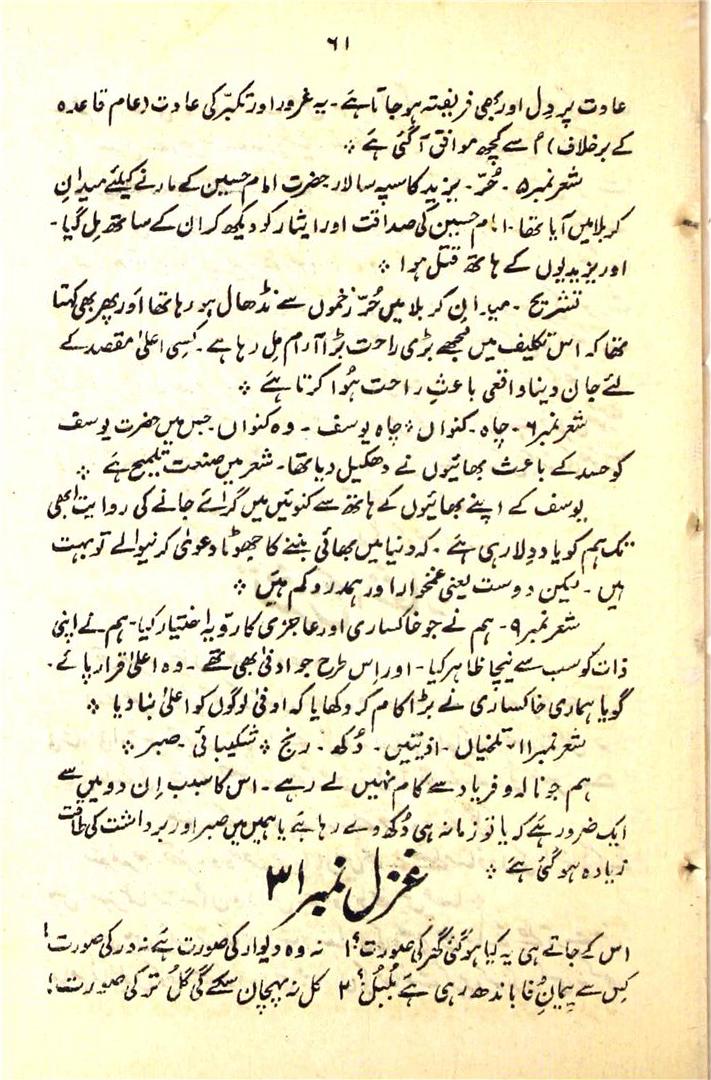 ۶۱
عادت پر دِل اور بھی فریفتہ ہو جاتا ہے ۔ یہ غرور اور تکبّر کی عادت (عام قاعدہ
کے برخلاف) اُسے کچھ موافق آ گئی ہے ٭
شعر نمبر ۵ ۔ حُرّ ۔ یزید کا سپہ سالار جو حضرت امام حسین کے مارنے کیلئے میدانِ
کربلا میں آیا تھا ۔ امام حسین کی صداقت اور ایثار کو دیکھ کر ان کے ساتھ مِل گیا ۔
اور یزیدیوں کے ہاتھ قتل ہوا ٭
تشریح ۔ میدانِ کربلا میں حُرّ زخموں سے نڈھال ہو رہا تھا اور پھر بھی کہتا
تھا کہ اس تکلیف میں مجھے بڑی راحت بڑا آرام مِل رہا ہے ۔ کسی اعلیٰ مقصد کے
لئے جان دینا واقعی باعثِ راحت ہُوا کرتا ہے ٭
شعر نمبر ۶ ۔ چاہ ۔ کنواں ٭ چاہِ یوسف ۔ وہ کنواں جس میں حضرت یوسف
کو حسد کے باعث بھائیوں نے دھکیل دیا تھا ۔ شعر میں صنعت تلمیح ہے ٭
یوسف کے اپنے بھائیوں کے ہاتھ سے کنوئیں میں گرائے جانے کی روایت ابھی
تک ہم کو یاد دلا رہی ہے ۔ کہ دنیا میں بھائی بننے کا جھوٹا دعویٰ کرنیوالے تو بہت
ہیں ۔ لیکن دوست یعنی غمخوار اور ہمدرد کم ہیں ٭
شعر نمبر ۹ ۔ ہم نے جو خاکساری اور عاجزی کا رویہ اختیار کیا ۔ ہم نے اپنی
ذات کو سب سے نیچا ظاہر کیا ۔ اور اس طرح جو ادنیٰ بھی تھے ۔ وہ اعلیٰ قرار پائے ۔
گویا ہماری خاکساری نے بڑا کام کر دکھایا کہ ادنیٰ لوگوں کو اعلیٰ بنا دیا ٭
شعر نمبر ۱۱ ۔ تلخیاں ۔ اذیتیں ۔ دُکھ ۔ رنج ٭ شکیبائی ۔ صبر ٭
ہم جو نالہ و فریاد سے کام نہیں لے رہے ۔ اس کا سبب اِن دو میں سے
ایک ضرور ہے کہ یا تو زمانہ ہی دُکھ دے رہا ہے یا ہمیں میں صبر اور برداشت کی طاقت
زیادہ ہو گئی ہے ٭
غزل نمبر ۳۱
اس کے جاتے ہی یہ کیا ہو گئی گھر کی صورت؟ ۱ نہ وہ دیوار کی صورت ہے نہ در کی صورت!
کِس سے پیمانِ وفا باندھ رہی ہے بُلبُل؟ ۲ کل نہ پہچان سکے گی گُلِ تر کی صورت!